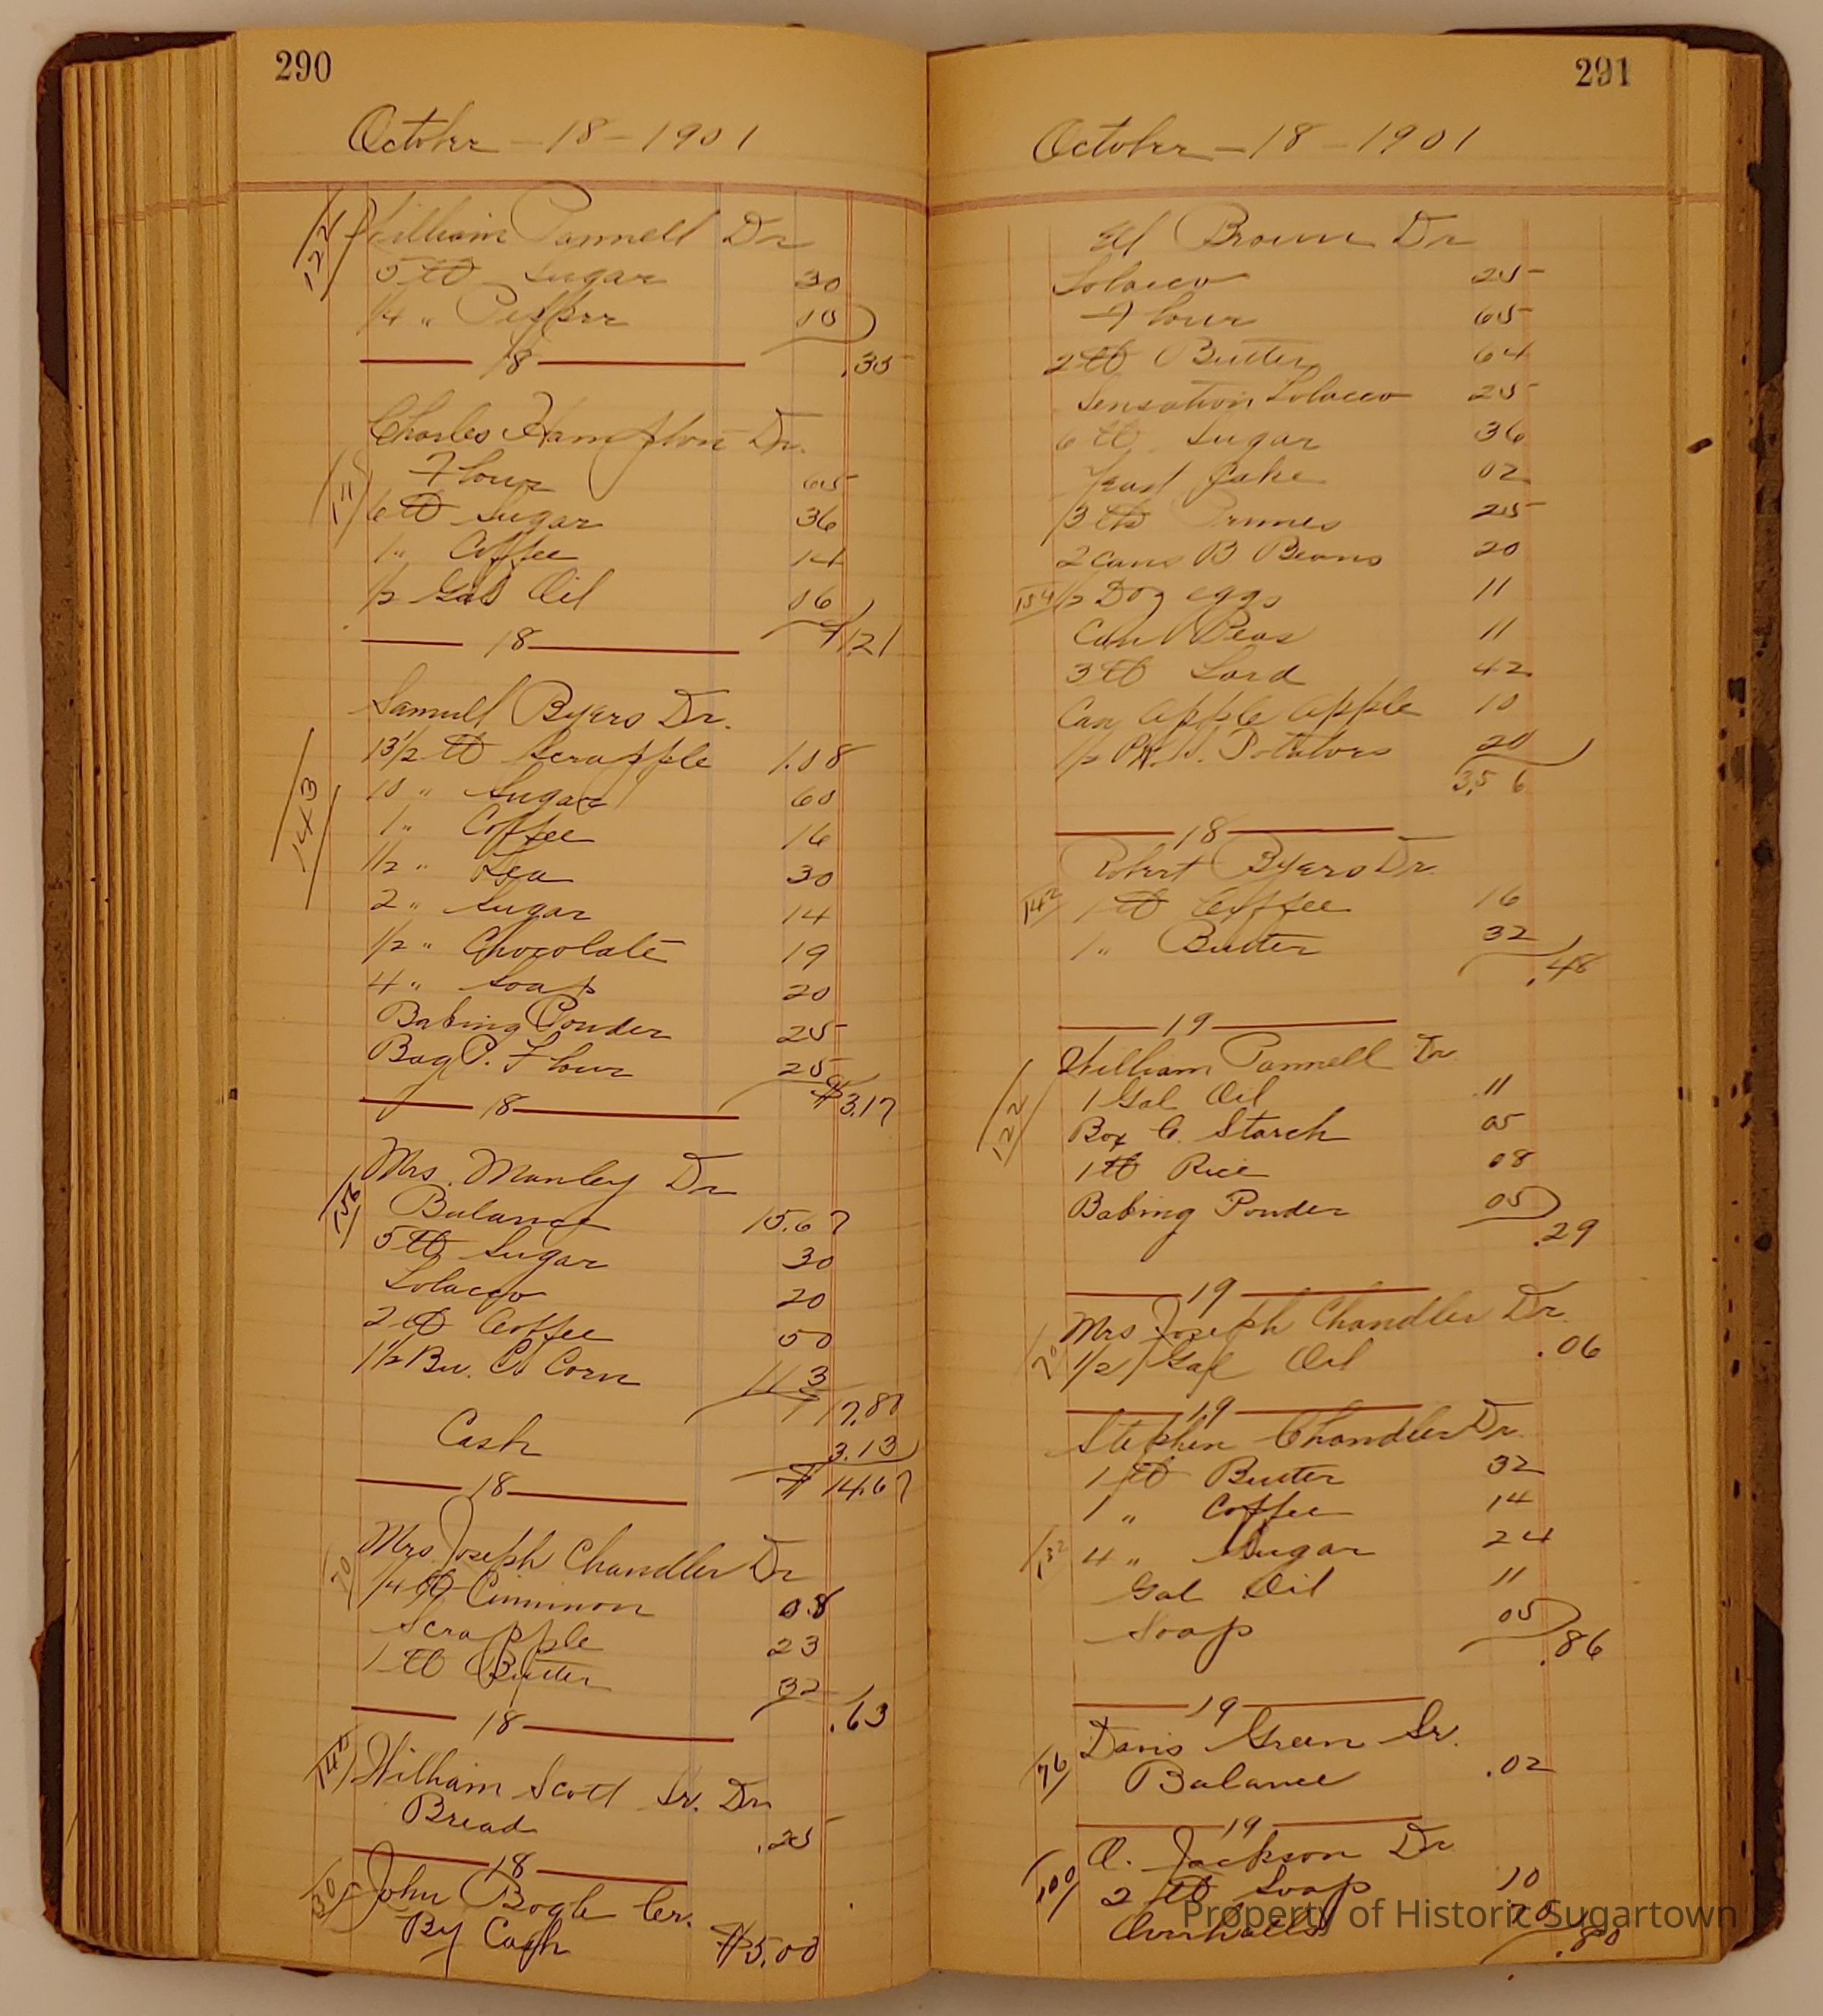 290
October - 18 - 1901
122
William Pannell Dr
5 lb Sugar 30
1/4 " Pepper 10
.35
18
Charles Hampton Dr.
Flour 65
6 lb Sugar 36
1 " Coffee 14
1/2 Gal Oil 06
$1.21
18
Samuel Byers Dr.
143
13 1/2 lb Scrapple 1.08
10 " Sugar 60
1 " Coffee 16
1/2 " Tea 30
2 " Sugar 14
1/2 " Chocolate 19
4 " Soap 20
Baking Powder 25
Bag P. Flour 25
$3.17
18
Mrs. Manley Dr
156
Balance 15.67
5 lb Sugar 30
Tobacco 20
2 lb Coffee 50
1 1/2 Bu. Corn 113
17.80
Cash 3.13
$14.67
18
Mrs Joseph Chandler Dr
70
1/4 lb Cinnimon 08
Scrapple 23
1 lb Butter 32
.63
18
William Scott Sr. Dr
Bread .25
18
30
John Bogle Cr.
By Cash $5.00
291
October - 18 - 1901
Brown Dr
Tobacco 25
Flour 65
2 lb Butter 64
Sensation Tobacco 25
6 lb Sugar 36
Yeast Cake 02
3 lb Prunes 25
2 cans B Beans 20
154
1/2 Doz eggs 11
Can Peas 11
3 lb Lard 42
Can apple apple 10
1/2 Pk. Potatoes 20
3.56
18
Robert Byers Dr.
142
1 lb Coffee 16
1 " Butter 32
.48
19
William Pannell Dr
122
1 Gal Oil .11
Box C. Starch 05
1 lb Rice 08
Baking Powder 05
.29
19
Mrs Joseph Chandler Dr.
70
1/2 Gal Oil .06
19
Stephen Chandler Dr.
1 lb Butter 32
1 " Coffee 14
132
4 " Sugar 24
Gal Oil 11
Soap 05
.86
19
Davis Green Sr.
76
Balance .02
19
O. Jackson Dr
100
2 lb Soap 10
Overhalls 70
.80
Property of Historic Sugartown